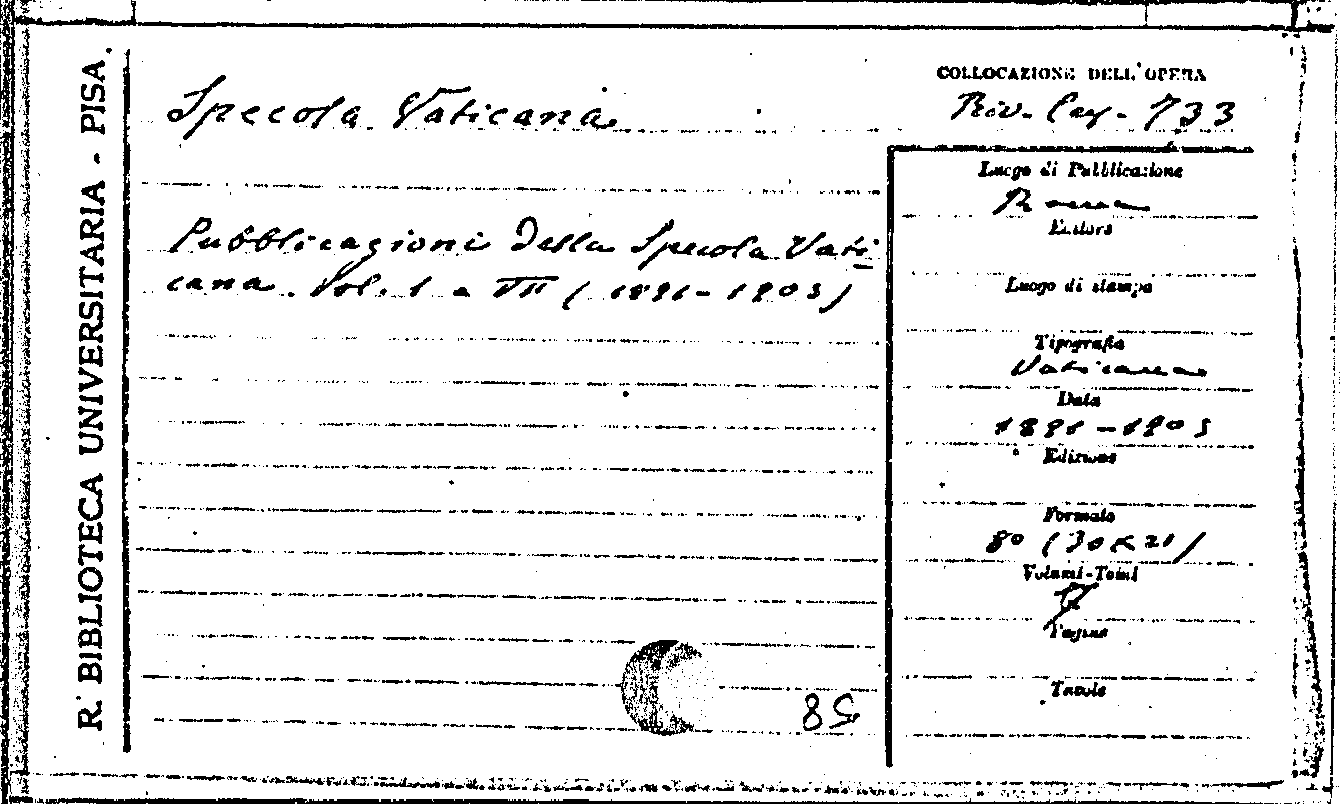 R. BIBLIOTECA UNIVERSITARIA - PISA.
Specola Vaticana
Pubblicazioni della Specola Vati
cana. Vol. 1 a VII (1891-1905)
COLLOCAZIONE DELL'OPERA
Riv. Cey. 733
Luogo di Pubblicazione
Roma
Editore
Luogo di stampa
Tipografia
Vaticana
Data
1891-1905
Edizione
Formato
8° (30×21)
Volumi-Tomi
7
Pagine
Tavole